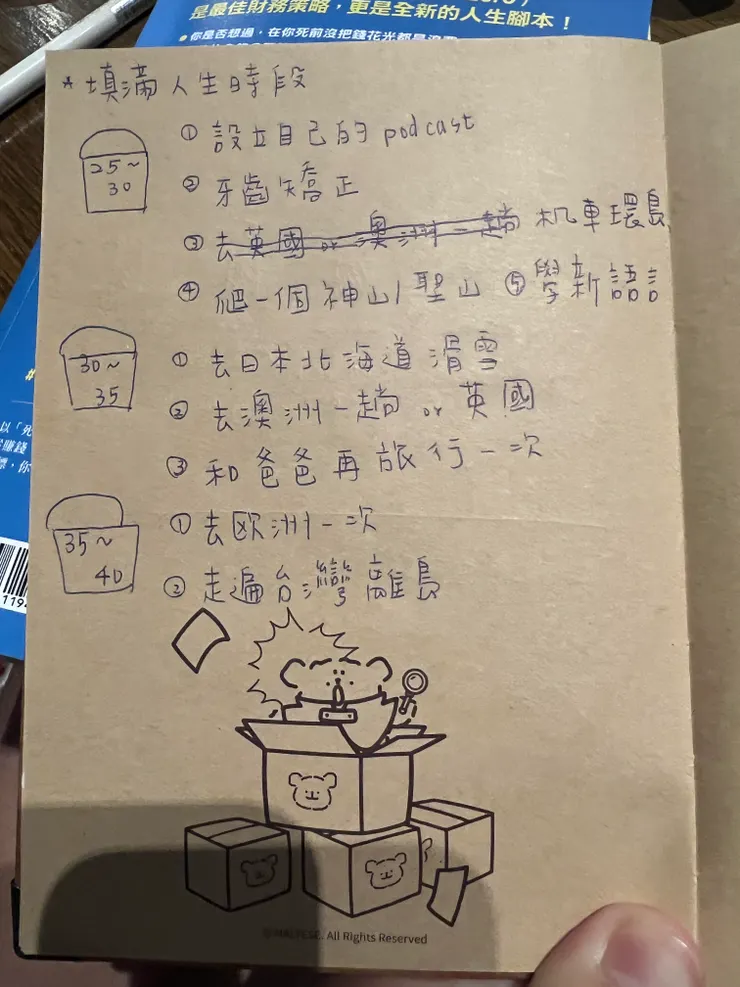 是最佳財務策略，更是全新的人生腳本！
你是否想過，在你死前沒把錢花光都是浪費
* 填滿人生時段
25~30
① 設立自己的 podcast
② 牙齒矯正
③ 去英國 or 澳洲一趟 机車環島
④ 爬一個神山/聖山 ⑤ 學新語言
30~35
① 去日本北海道滑雪
② 去澳洲一趟 or 英國
③ 和爸爸再旅行一次
35~40
① 去歐洲一次
② 走遍台灣離島
以「死
賺錢
標，你
119
©MALTESE. All Rights Reserved